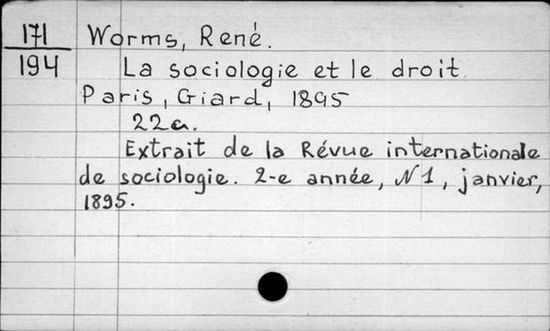 171
194
Worms, René.
La sociologie et le droit.
Paris, Giard, 1895
22a.
Extrait de la Révue internationale
de sociologie. 2-e année, N1, janvier,
1895.